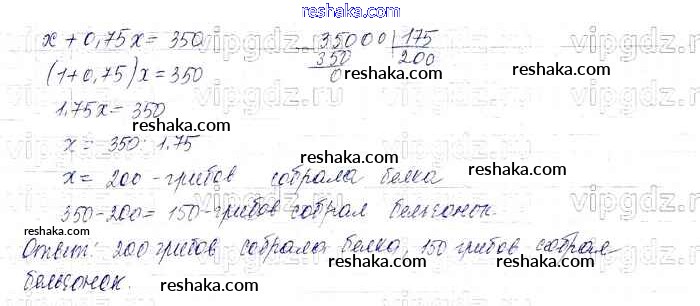 reshaka.com
x + 0,75x = 350
35000 | 175
350 200
0
(1+0,75)x = 350
reshaka.com
1,75x = 350
reshaka.com
x = 350 : 1.75
reshaka.com
x = 200 - грибов собрала белка
reshaka.com
350-200 = 150 - грибов собрал бельчонок.
reshaka.com
reshaka.com
Ответ: 200 грибов собрала белка, 150 грибов собрал
бельчонок.
reshaka.com
reshaka.com
vipgdz.ru
vipgdz.ru
vipgdz.ru
vipgdz.ru